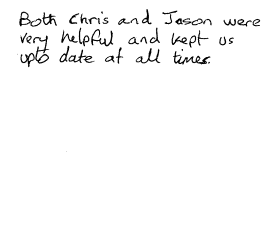 Both Chris and Jason were
very helpful and kept us
upto date at all times.